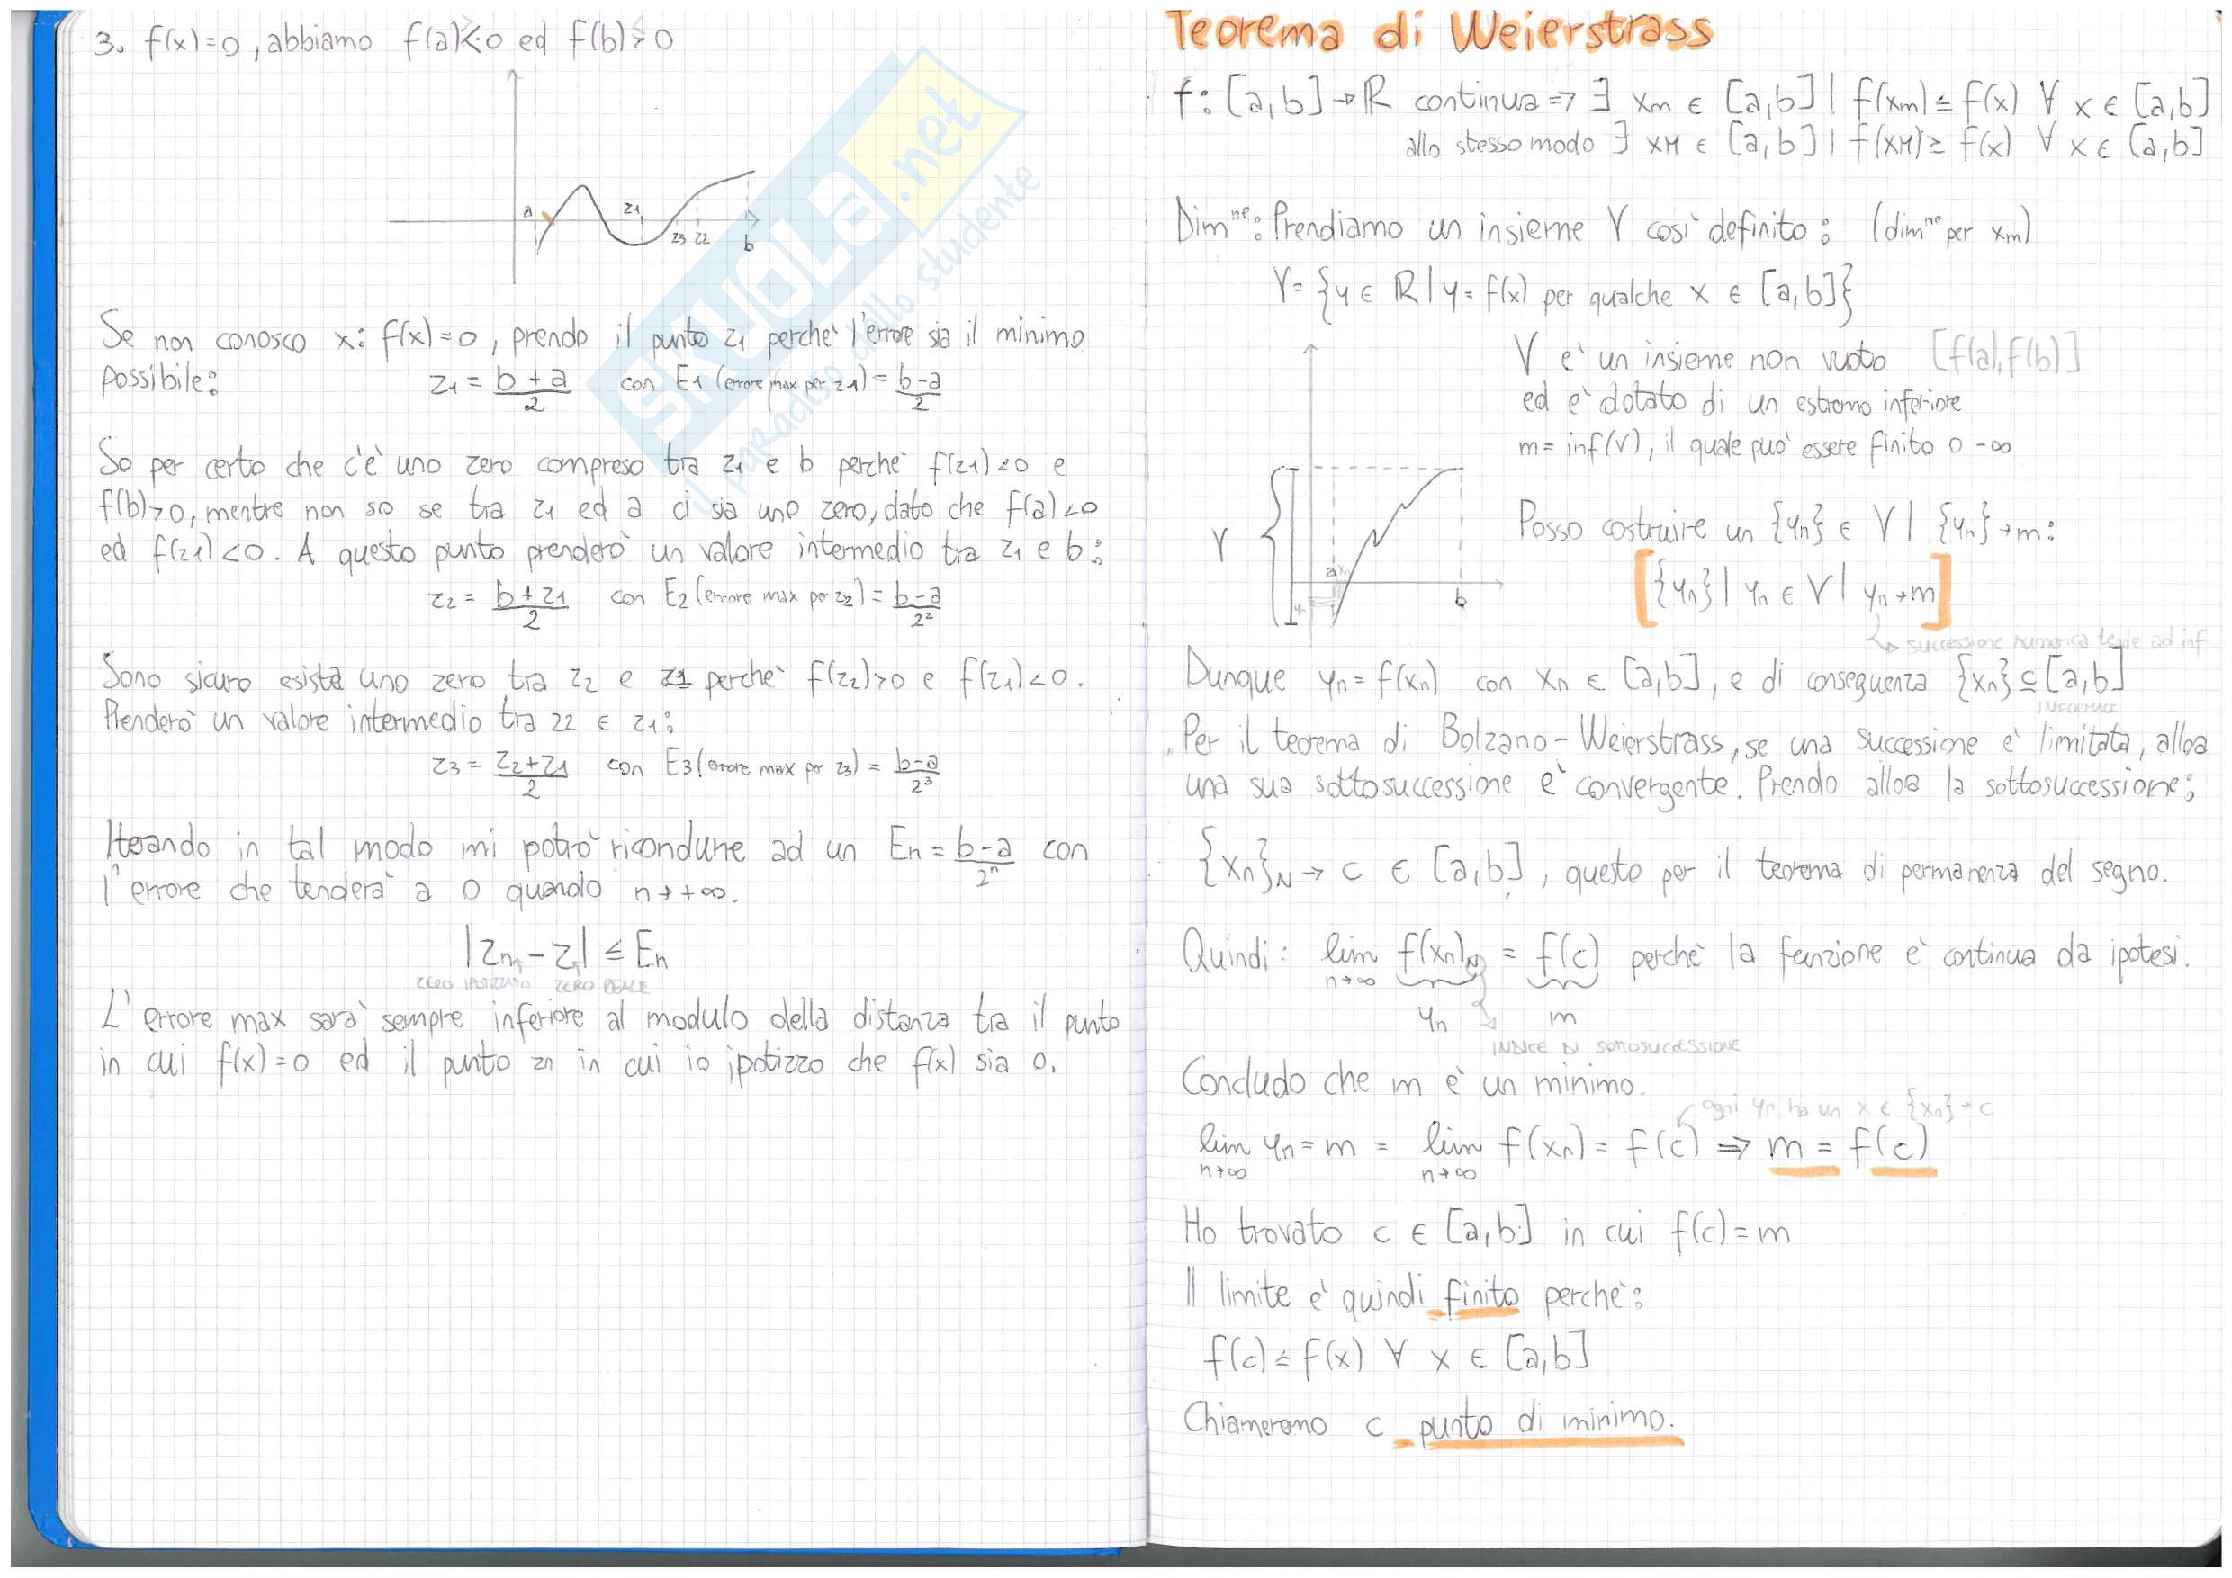 3. f(x)=0, abbiamo f(a)<0 ed f(b)>0
a
z1
z3 z2
b
Se non conosco x: f(x)=0, prendo il punto z1 perchè l'errore sia il minimo
possibile:
z1 = b+a/2 con E1 (errore max per z1) = b-a/2
So per certo che c'è uno zero compreso tra z1 e b perchè f(z1)<0 e
f(b)>0, mentre non so se tra z1 ed a ci sia uno zero, dato che f(a)<0
ed f(z1)<0. A questo punto prenderò un valore intermedio tra z1 e b:
z2 = b+z1/2 con E2 (errore max per z2) = b-a/2²
Sono sicuro esista uno zero tra z2 e z1 perchè f(z2)>0 e f(z1)<0.
Prenderò un valore intermedio tra z2 e z1:
z3 = z2+z1/2 con E3 (errore max per z3) = b-a/2³
Iterando in tal modo mi potrò ricondurre ad un En = b-a/2ⁿ con
l'errore che tenderà a 0 quando n→+∞.
|zn - z| ≤ En
ZERO IPOTIZZATO ZERO REALE
L'errore max sarà sempre inferiore al modulo della distanza tra il punto
in cui f(x)=0 ed il punto zn in cui io ipotizzo che f(x) sia 0.
SKUOLA.net
il paradiso dello studente
Teorema di Weierstrass
f: [a,b]→ℝ continua ⇒ ∃ xm ∈ [a,b] | f(xm) ≤ f(x) ∀ x ∈ [a,b]
allo stesso modo ∃ xM ∈ [a,b] | f(xM) ≥ f(x) ∀ x ∈ [a,b]
Dimⁿᵉ: Prendiamo un insieme Y così definito: (dimⁿᵉ per xm)
Y= {y ∈ ℝ | y = f(x) per qualche x ∈ [a,b]}
Y è un insieme non vuoto [f(a), f(b)]
ed è dotato di un estremo inferiore
m = inf(Y), il quale può essere finito o -∞
Y
a
b
Posso costruire un {yn} ∈ Y | {yn}→m:
[{yn} | yn ∈ Y | yn→m]
successione numerica tende ad inf
Dunque yn = f(xn) con xn ∈ [a,b], e di conseguenza {xn} ⊆ [a,b]
Per il teorema di Bolzano-Weierstrass, se una successione è limitata, allora
una sua sottosuccessione è convergente. Prendo allora la sottosuccessione:
{xn}N → c ∈ [a,b], questo per il teorema di permanenza del segno.
Quindi: lim n→∞ f(xn)N = f(c) perchè la funzione è continua da ipotesi.
yn m
INDICE DI SOTTOSUCCESSIONE
Concludo che m è un minimo.
ogni yn ha un x ∈ {xn}→c
lim n→∞ yn = m = lim n→∞ f(xn) = f(c) ⇒ m = f(c)
Ho trovato c ∈ [a,b] in cui f(c)=m
Il limite è quindi finito perchè:
f(c) ≤ f(x) ∀ x ∈ [a,b]
Chiameremo c punto di minimo.